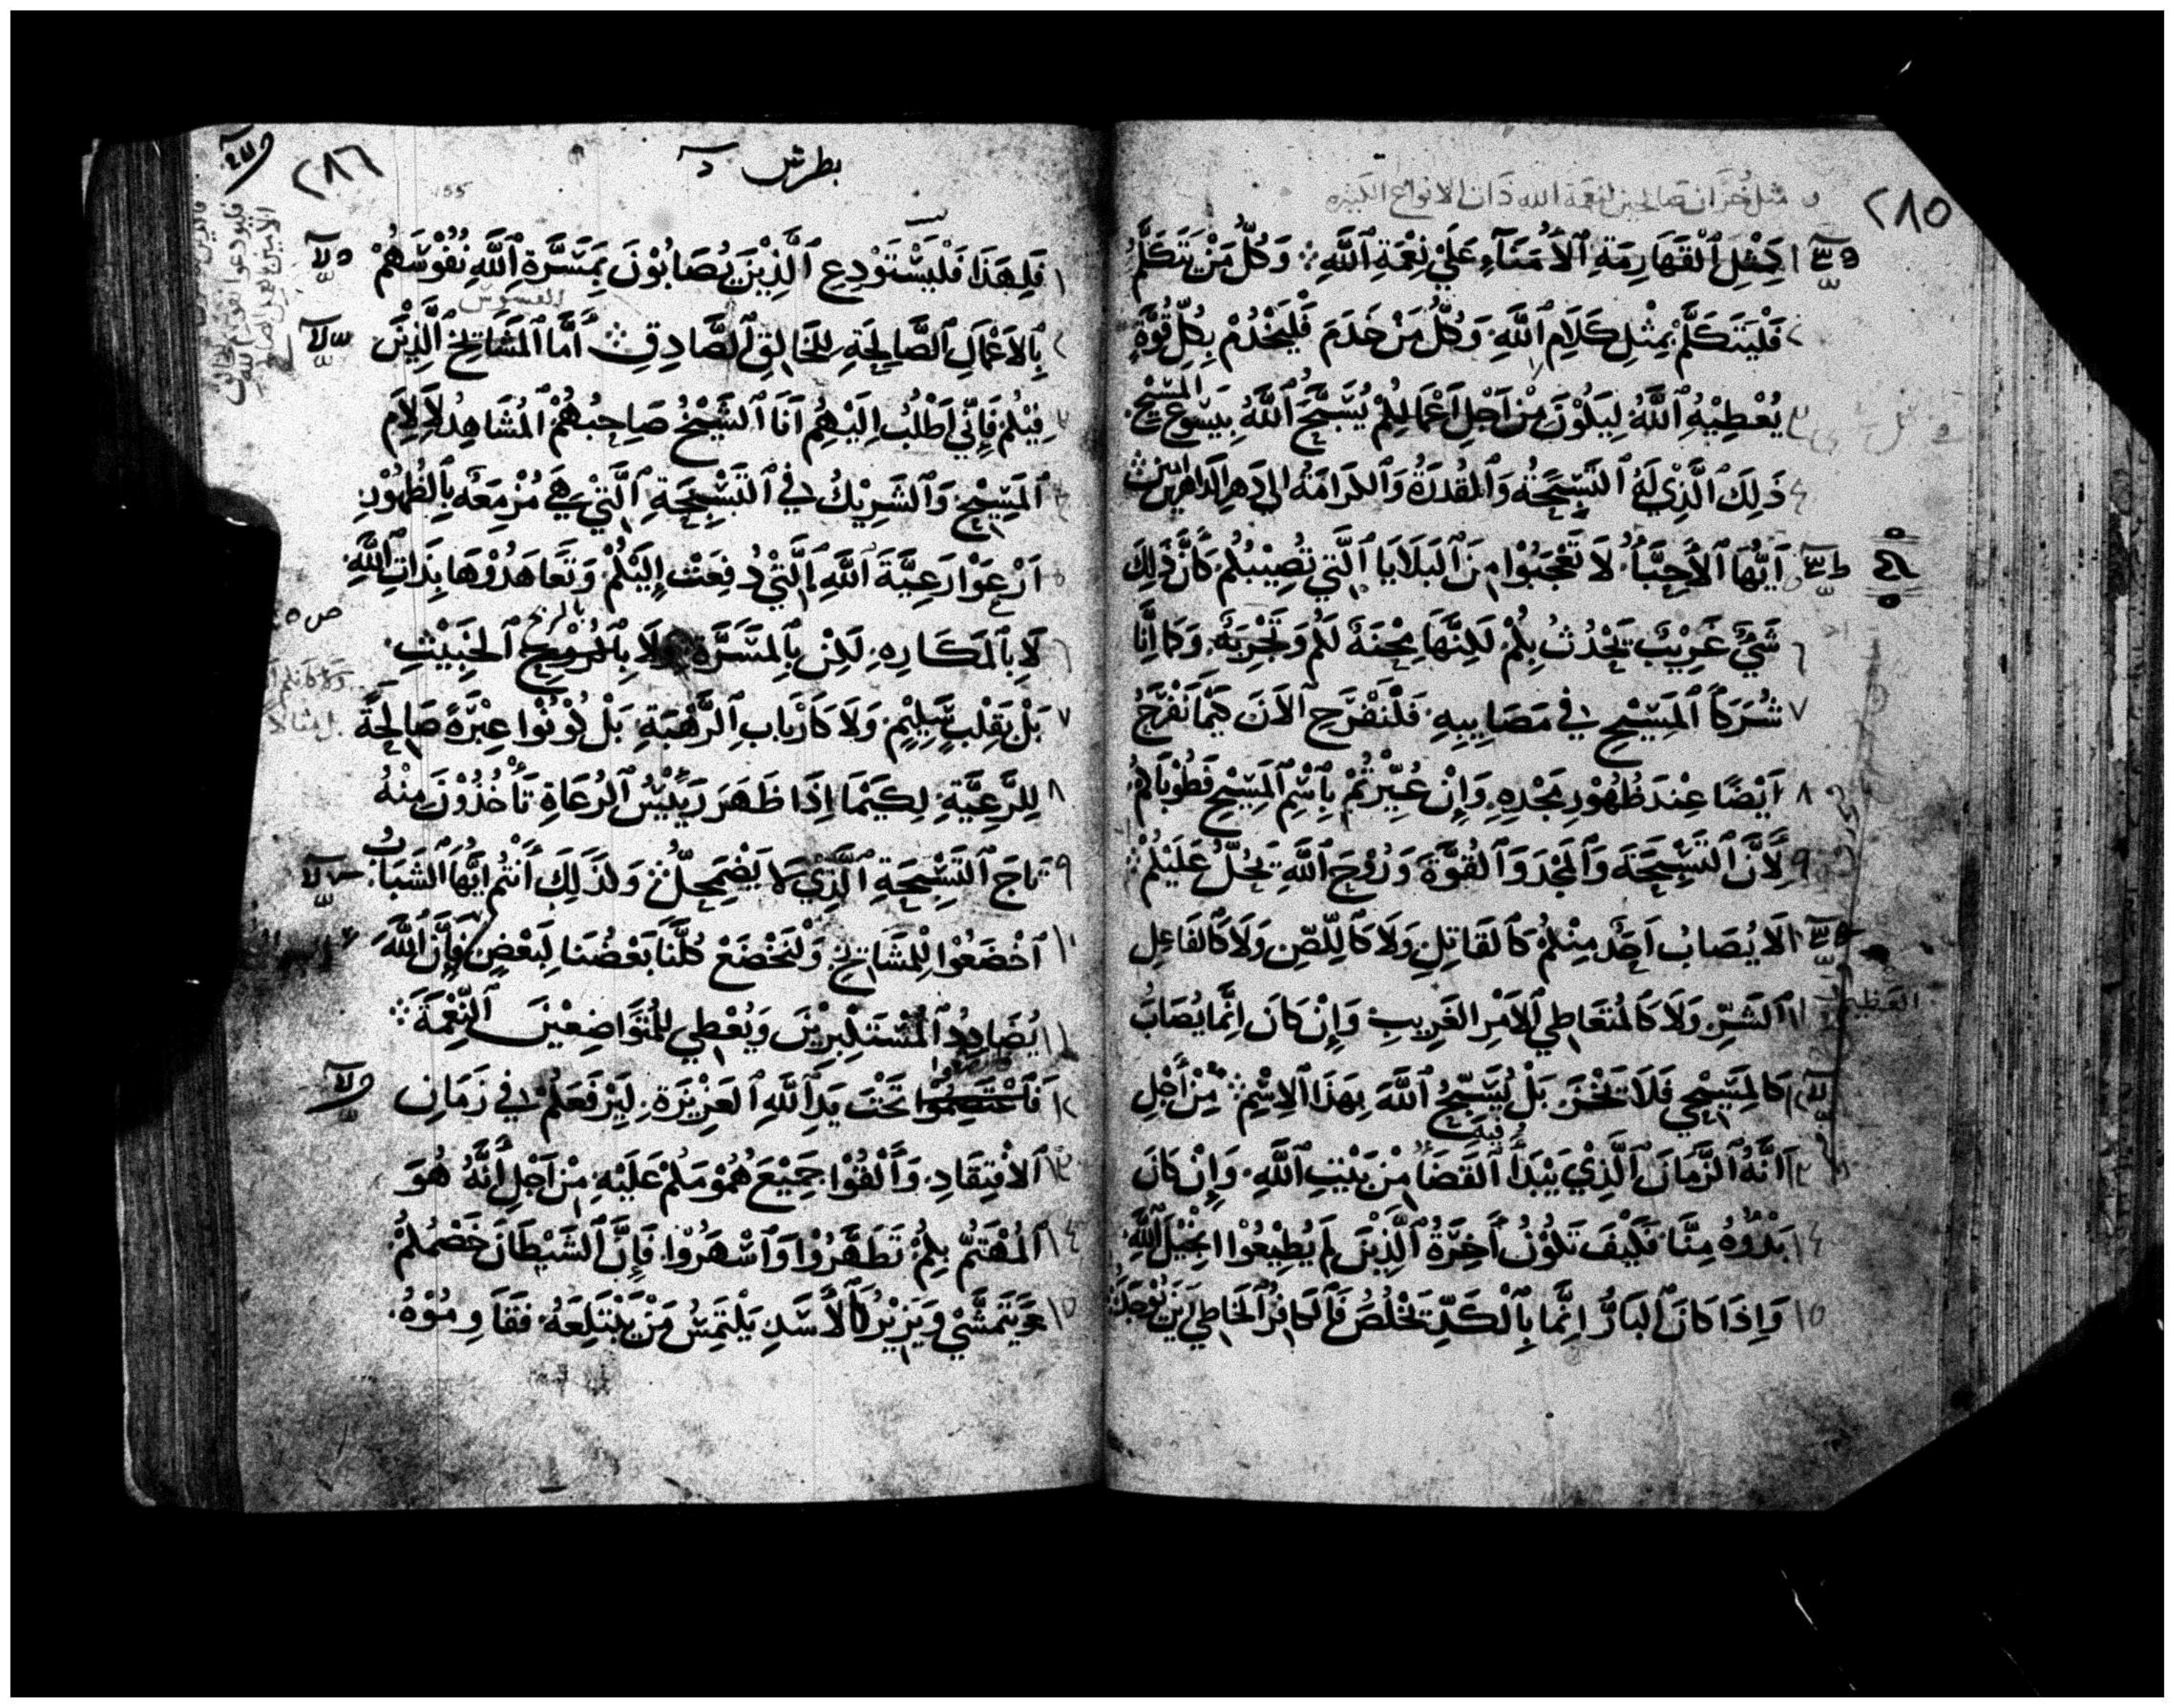 ٢٨٥
و مثل خزان صالحين لنعمة الله ذات الانواع الكثيره
١ كَمِثْلِ ٱلْقَهَارِمَةِ ٱلْأُمَنَآءِ عَلَيْ نِعْمَةِ ٱللَّهِ ۞ وَكُلُّ مَنْ يَتَكَلَّمُ
٢ فَلْيَتَكَلَّمْ بِمِثْلِ كَلَامِ ٱللَّهِ وَكُلُّ مَنْ خَدَمَ فَلْيَخْدُمْ بِكُلِّ قُوَّةٍ
٣ يُعْطِيْهِ ٱللَّهُ لِيَكُوْنَ مِنْ اَجْلِ اَعْمَالِكُمْ يُسَبَّحُ ٱللَّهُ بِيَسُوعَ المَسِيْحِ
٤ ذَلِكَ ٱلَّذِيْ لَهُ ٱلتَّسْبِحَةُ وَٱلْمَقْدَرَةُ وَٱلْكَرَامَةُ الي دَهرِ الدَاهِرين امين
٥ اَيُّهَا ٱلْأَحِبَّآءُ لَا تَعْجَبُوْا مِنَ ٱلْبَلَايَا ٱلَّتِي تُصِيْبُكُمْ كَأَنَّ ذَلِكَ
٦ شَيْءٌ غَرِيْبٌ يَحْدُثُ بِكُمْ لَكِنَّهَا مِحْنَةٌ لَكُمْ وَتَجْرِبَةٌ وَكَمَا اِنَّا
٧ شُرَكَآءُ ٱلْمَسِيْحِ فِي مَصَايِبِهِ فَلْنَفْرَحِ ٱلْاَنَ كَيْمَا نَفْرَحُ
٨ اَيْضًا عِنْدَ ظُهُوْرِ مَجْدِهِ وَإِنْ عُيِّرْتُمْ بِٱسْمِ ٱلْمَسِيْحِ فَطُوْبَاكُمْ
٩ لِأَنَّ ٱلتَّسْبِحَةَ وَٱلْمَجْدَ وَٱلْقُوَّةَ وَرُوْحَ ٱللَّهِ تَحُلُّ عَلَيْكُمْ ۞
١٠ لَا يُصَابُ اَحَدٌ مِنْكُمْ كَٱلْقَاتِلِ وَلَا كَٱللِّصِّ وَلَا كَٱلْفَاعِلِ
١١ ٱلشَّرِّ وَلَا كَٱلْمُتَعَاطِي ٱلْاَمْرِ الغَرِيبِ وَإِنْ كَانَ اِنَّمَا يُصَابُ
١٢ كَالْمَسِيْحِي فَلَا يَحْزَنْ بَلْ يُسَبِّحُ ٱللَّهَ بِهَذَا ٱلْاِسْمِ ۞ مِنْ أَجْلِ
١٣ اَنَّهُ ٱلزَّمَانَ ٱلَّذِيْ يَبْدَأُ فيه ٱلْقَضَآءُ مِنْ بَيْتِ ٱللَّهِ وَإِنْ كَانَ
١٤ بَدْؤُهُ مِنَّا فَكَيْفَ تَكُوْنُ آخِرَةُ ٱلَّذِيْنَ لَمْ يُطِيْعُوْا اِنْجِيْلَ ٱللَّهِ
١٥ وَاِذَا كَانَ ٱلْبَارُّ اِنَّمَا بِٱلْكَدِّ يَخْلُصُ فَٱلْكَافِرُ ٱلْخَاطِي اَيْنَ يُوْجَدُ
العظيم
٢٨٦
بطرس
١ فَلِهَذَا فَلْيَسْتَوْدِعِ ٱلَّذِيْنَ يُصَابُوْنَ بِمَسَرَّةِ ٱللَّهِ نُفُوْسَهُمْ
٢ بِالْاَعْمَالِ ٱلصَّالِحَةِ لِلْخَالِقِ ٱلصَّادِقِ ۞ أَمَّا ٱلْمَشَايِخُ ٱلَّذِيْنَ
القسوس
٣ فِيْكُمْ فَإِنِّي اَطْلُبُ اِلَيْهِمْ اَنَا ٱلشَّيْخُ صَاحِبُهُمْ ٱلْمُشَاهِدُ لِآلَامِ
٤ ٱلْمَسِيْحِ وَٱلشَّرِيْكُ فِي ٱلتَّسْبِحَةِ ٱلَّتِيْ هِيَ مُزْمِعَةٌ بِٱلظُّهُوْرِ
٥ اَرْعَوْا رَعِيَّةَ ٱللَّهِ ٱلَّتِيْ دُفِعَتْ اِلَيْكُمْ وَتَعَاهَدُوْهَا بِذَاتِ ٱللَّهِ
٦ لَا بِٱلْمَكَارِهِ لَكِنْ بِٱلْمَسَرَّةِ وَلَا بِٱلْرِبْحِ ٱلْخَبِيْثِ
بالربح
٧ بَلْ بِقَلْبٍ سَلِيْمٍ وَلَا كَأَرْبَابِ ٱلرَّهْبَةِ بَلْ كُوْنُوْا عِبْرَةً صَالِحَةً
٨ لِلرَّعِيَّةِ لِكَيْمَا اِذَا ظَهَرَ رَئِيْسُ ٱلرُّعَاةِ تَأْخُذُوْنَ مِنْهُ
٩ تَاجَ ٱلتَّسْبِحَةِ ٱلَّذِيْ لَا يَضْمَحِلُّ وَلِذَلِكَ أَنْتُمْ اَيُّهَا ٱلشَّبَابُ
١٠ ٱخْضَعُوْا لِلْمَشَايِخِ وَلْنَخْضَعْ كُلُّنَا بَعْضُنَا لِبَعْضٍ فَإِنَّ ٱللَّهَ
١١ يُضَادِدُ ٱلْمُسْتَكْبِرِيْنَ وَيُعْطِي لِلْمُتَوَاضِعِيْنَ ٱلنِّعْمَةَ ۞
١٢ فَٱعْتَصِمُوْا تَحْتَ يَدِ ٱللَّهِ ٱلْعَزِيْزَةِ لِيَرْفَعَكُمْ فِي زَمَانِ
١٣ ٱلْاِفْتِقَادِ وَأَلْقُوْا جَمِيْعَ هُمُوْمَكُمْ عَلَيْهِ مِنْ اَجْلِ أَنَّهُ هُوَ
١٤ ٱلْمُهْتَمُّ بِكُمْ تَطَهَّرُوْا وَٱسْهَرُوْا فَإِنَّ ٱلشَّيْطَانَ خَصْمُكُمْ
١٥ يَتَمَشَّي وَيَزِيْرُ كَٱلْأَسَدِ يَلْتَمِسُ مَنْ يَبْتَلِعَهُ فَقَاوِمُوْهُ